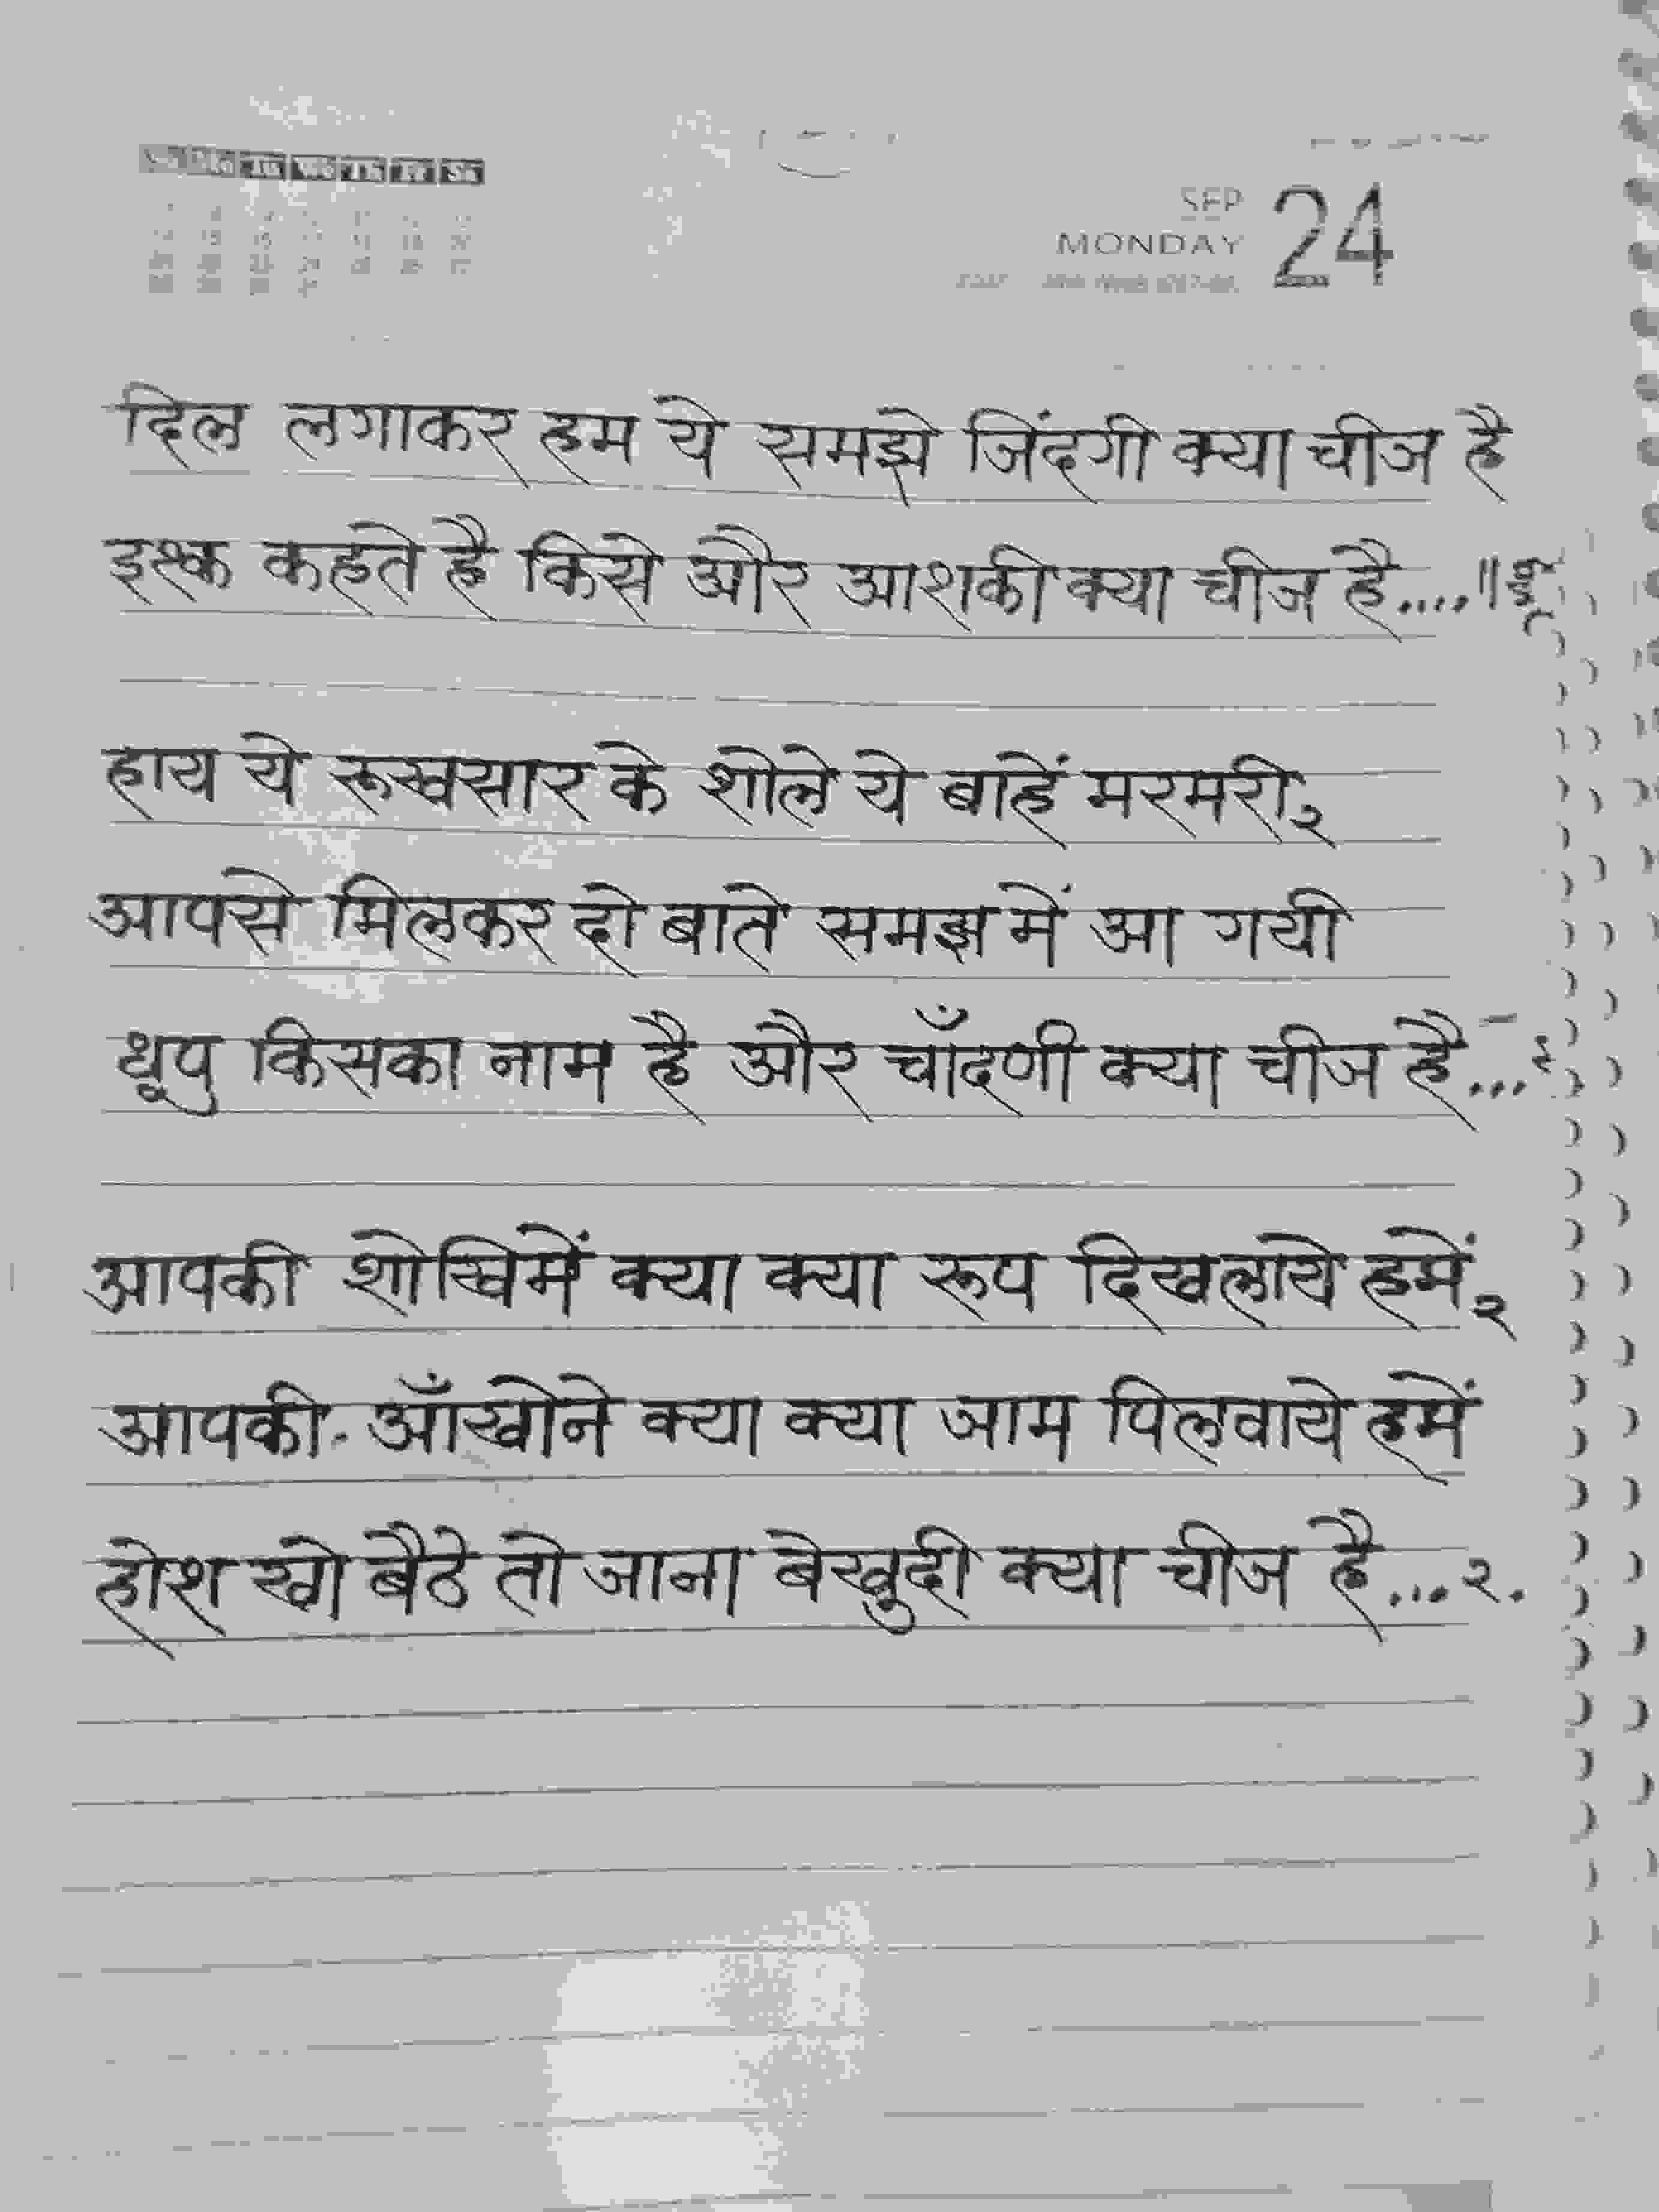 Tu We Th Fr Sa
SEP
MONDAY 24
दिल लगाकर हम ये समझे जिंदगी क्या चीज है
इश्क कहते है किसे और आशकी क्या चीज है....॥धृ॥
हाय ये रूखसार के शोले ये बाहें मरमरी२
आपसे मिलकर दो बाते समझ में आ गयी
धूप किसका नाम है और चाँदणी क्या चीज है...२
आपकी शोखिमें क्या क्या रूप दिखलाये हमें२
आपकी आँखोने क्या क्या जाम पिलवाये हमें
होश खो बैठे तो जाना बेखुदी क्या चीज है...२.